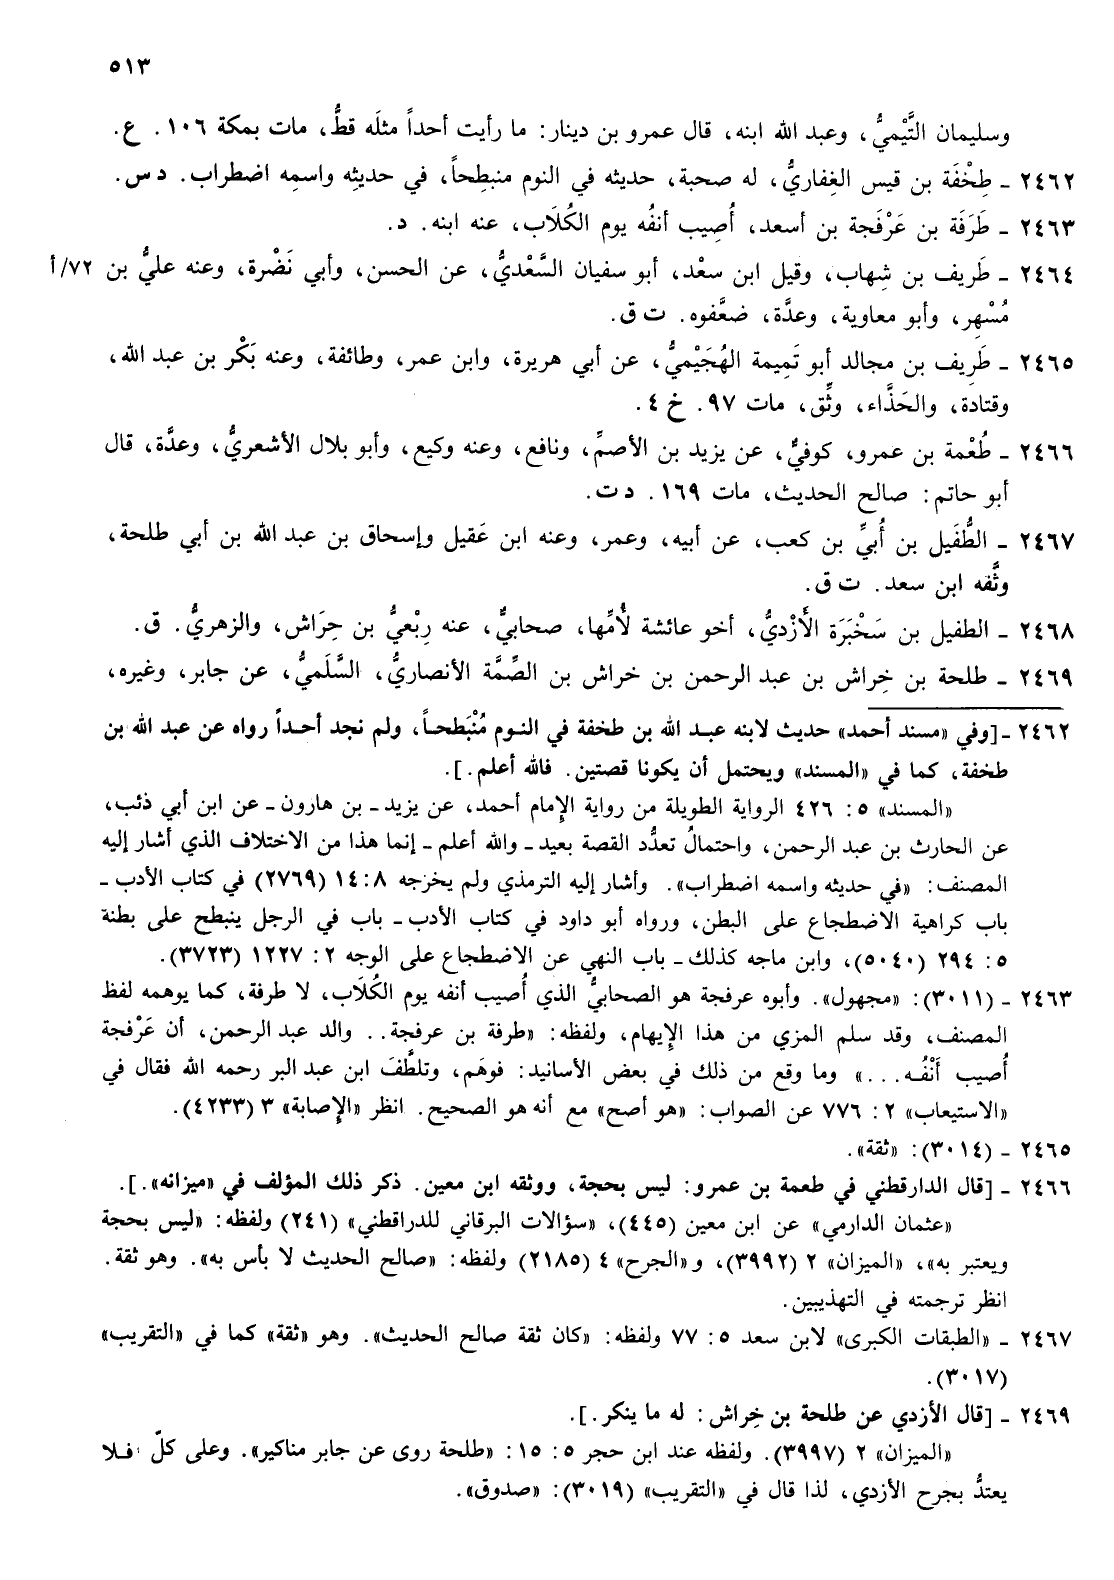 ٥١٣
وسليمان التَّيْميُّ، وعبد الله ابنه، قال عمرو بن دينار: ما رأيت أحداً مثلَه قطُّ، مات بمكة ١٠٦. ع.
٢٤٦٢ ـ طِخْفَة بن قيس الغِفاريُّ، له صحبة، حديثه في النوم منبطِحاً، في حديثِه واسمِه اضطراب. د س.
٢٤٦٣ ـ طَرَفَة بن عَرْفَجة بن أسعد، أُصِيب أنفُه يوم الكُلَاب، عنه ابنه. د.
٢٤٦٤ ـ طَريف بن شِهاب، وقيل ابن سعْد، أبو سفيان السَّعْديُّ، عن الحسن، وأبي نَضْرة، وعنه عليُّ بن ٧٢/أ
مُسْهِر، وأبو معاوية، وعدَّة، ضعَّفوه. ت ق.
٢٤٦٥ ـ طَرِيف بن مجالد أبو تَمِيمة الهُجَيْميُّ، عن أبي هريرة، وابن عمر، وطائفة، وعنه بَكْر بن عبد الله،
وقتادة، والحَذَّاء، وثِّق، مات ٩٧. خ ٤.
٢٤٦٦ ـ طُعْمة بن عمرو، كوفيٌّ، عن يزيد بن الأصمِّ، ونافع، وعنه وكيع، وأبو بلال الأشعريُّ، وعدَّة، قال
أبو حاتم: صالح الحديث، مات ١٦٩. د ت.
٢٤٦٧ ـ الطُّفَيل بن أُبيِّ بن كعب، عن أبيه، وعمر، وعنه ابن عَقيل وإسحاق بن عبد الله بن أبي طلحة،
وثَّقه ابن سعد. ت ق.
٢٤٦٨ ـ الطفيل بن سَخْبَرَة الأَزْديُّ، أخو عائشة لأُمِّها، صحابيٌّ، عنه رِبْعيُّ بن حِرَاش، والزهريُّ. ق.
٢٤٦٩ ـ طلحة بن خِراش بن عبد الرحمن بن خراش بن الصِّمَّة الأنصاريُّ، السَّلَميُّ، عن جابر، وغيره،
٢٤٦٢ ـ [وفي «مسند أحمد» حديث لابنه عبد الله بن طخفة في النوم مُنْبَطحاً، ولم نجد أحداً رواه عن عبد الله بن
طخفة، كما في «المسند» ويحتمل أن يكونا قصتين. فالله أعلم.].
«المسند» ٥: ٤٢٦ الرواية الطويلة من رواية الإمام أحمد، عن يزيد ـ بن هارون ـ عن ابن أبي ذئب،
عن الحارث بن عبد الرحمن، واحتمالُ تعدُّد القصة بعيد ـ والله أعلم ـ إنما هذا من الاختلاف الذي أشار إليه
المصنف: «في حديثه واسمه اضطراب». وأشار إليه الترمذي ولم يخرجه ٨: ١٤ (٢٧٦٩) في كتاب الأدب ـ
باب كراهية الاضطجاع على البطن، ورواه أبو داود في كتاب الأدب ـ باب في الرجل ينبطح على بطنة
٥: ٢٩٤ (٥٠٤٠)، وابن ماجه كذلك ـ باب النهي عن الاضطجاع على الوجه ٢: ١٢٢٧ (٣٧٢٣).
٢٤٦٣ ـ (٣٠١١): «مجهول». وأبوه عرفجة هو الصحابيُّ الذي أُصيب أنفه يوم الكُلَاب، لا طرفة، كما يوهمه لفظ
المصنف، وقد سلم المزي من هذا الإيهام، ولفظه: «طرفة بن عرفجة.. والد عبد الرحمن، أن عَرْفجة
أُصيب أَنْفُه...» وما وقع من ذلك في بعض الأسانيد: فوهَم، وتلطَّفَ ابن عبد البر رحمه الله فقال في
«الاستيعاب» ٢: ٧٧٦ عن الصواب: «هو أصح» مع أنه هو الصحيح. انظر «الإصابة» ٣ (٤٢٣٣).
٢٤٦٥ ـ (٣٠١٤): «ثقة».
٢٤٦٦ ـ [قال الدارقطني في طعمة بن عمرو: ليس بحجة، ووثقه ابن معين. ذكر ذلك المؤلف في «ميزانه».].
«عثمان الدارمي» عن ابن معين (٤٤٥)، «سؤالات البرقاني للدراقطني» (٢٤١) ولفظه: «ليس بحجة
ويعتبر به»، «الميزان» ٢ (٣٩٩٢)، و«الجرح» ٤ (٢١٨٥) ولفظه: «صالح الحديث لا بأس به». وهو ثقة.
انظر ترجمته في التهذيبين.
٢٤٦٧ ـ «الطبقات الكبرى» لابن سعد ٥: ٧٧ ولفظه: «كان ثقة صالح الحديث». وهو «ثقة» كما في «التقريب»
(٣٠١٧).
٢٤٦٩ ـ [قال الأزدي عن طلحة بن خِراش: له ما ينكر.].
«الميزان» ٢ (٣٩٩٧). ولفظه عند ابن حجر ٥: ١٥: «طلحة روى عن جابر مناكير». وعلى كلّ فلا
يعتدُّ بجرح الأزدي، لذا قال في «التقريب» (٣٠١٩): «صدوق».